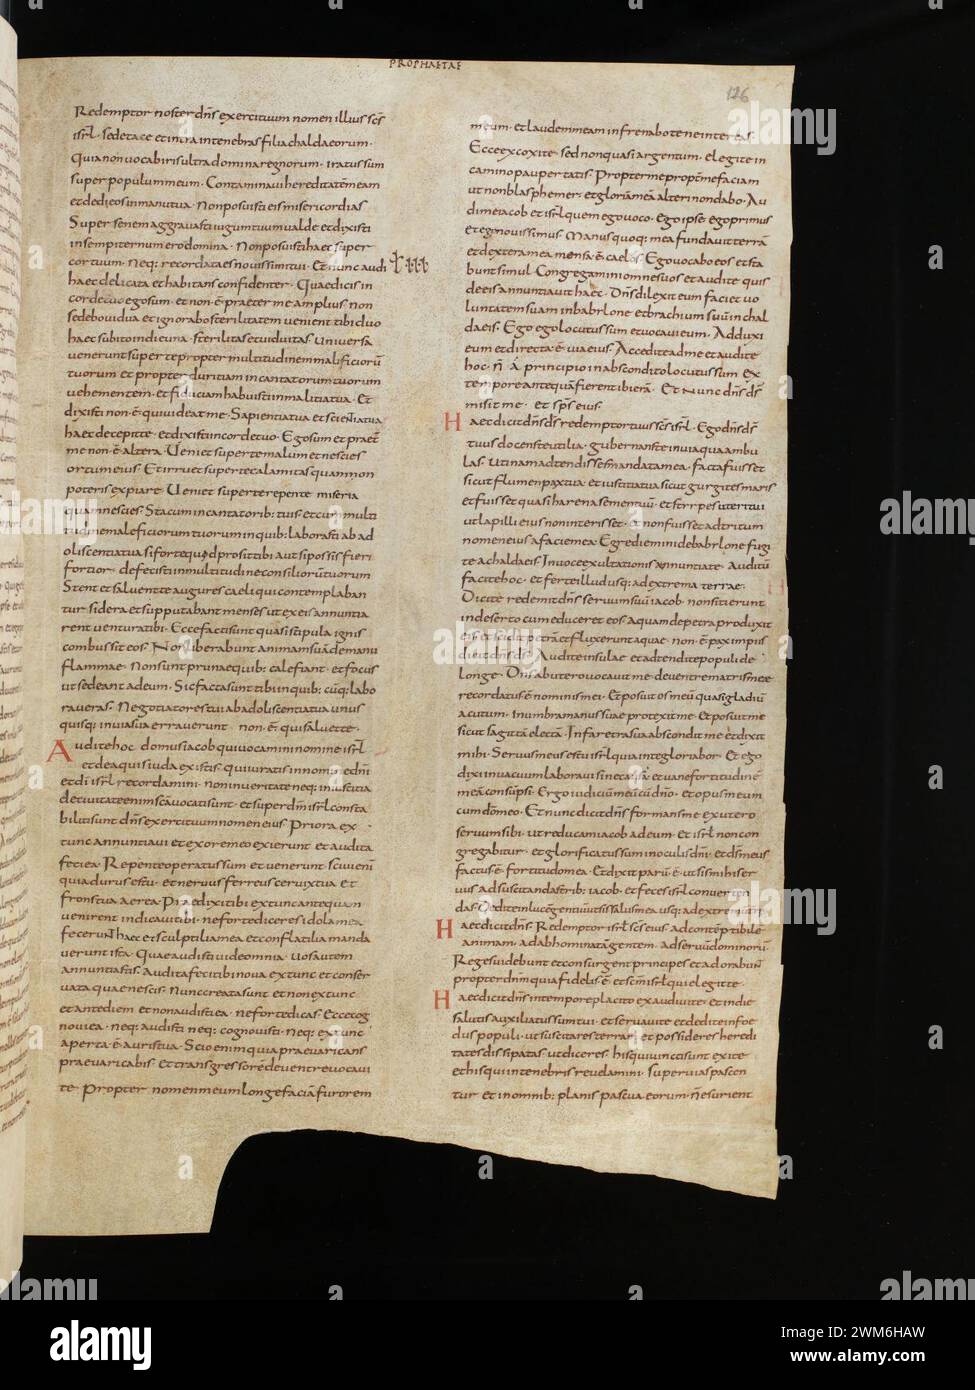 PROPHAETAE
126
Redemptor noster dn̄s exercituum nomen illius sc̄s
isrl̄. Sede tace et intra in tenebras filia chaldaeorum.
Quia non vocaberis ultra domina regnorum. iratus sum
super populum meum. Contaminavi hereditatem meam
et dedi eos in manu tua. Non posuisti eis misericordias
Super senem aggravasti iugum tuum valde et dixisti
in sempiternum ero domina. Non posuisti haec super
cor tuum. Neq: recordata es novissimi tui. Et nunc audi
haec delicata et habitans confidenter. Quae dicis in
corde tuo ego sum. et non ē praeter me amplius. non
sedebo vidua et ignorabo sterilitatem venient tibi duo
haec subito in die una. sterilitas et viduitas. Universa
venerunt super te propter multitudinem maleficiorū
tuorum et propter duritiam incantatorum tuorum
vehementem. et fiduciam habuisti in malitia tua. Et
dixisti non ē qui videat me. Sapientia tua et scientia tua
haec decepit te. et dixisti in corde tuo. Ego sum et praet̄
me non ē altera. Veniet super te malum et nescies
ortum eius. Et irruet super te calamitas quam non
poteris expiare. Veniet super te repente miseria
quam nescies. Sta cum incantatorib: tuis et cum multi
tudine maleficiorum tuorum in quib: laborasti ab ad
oliscentia tua si forte quod prosit tibi aut si possis fieri
fortior. defecisti in multitudine consiliorū tuorum
Stent et salvent te augures caeli qui contemplaban
tur sidera et supputabant menses ut ex eis annuntia
rent ventura tibi. Ecce facti sunt quasi stipula ignis
combussit eos. Non liberabunt animam suā de manu
flammae. Non sunt prunae quib: calefiant. et focus
ut sedeant ad eum. Sic facta sunt tibi in quib: cūq: labo
raveras. Negotiatores tui ab adoliscentia tua unus
quisq: in via sua erraverunt. non ē qui salvet te.
Audite hoc domus iacob qui vocamini nomine isrl̄
et de aquis iuda existis. qui iuratis in nomine dn̄i
et dī isrl̄ recordamini. non in veritate neq: in iustitia
De civitate enim scā vocati sunt. et super dm̄ isrl̄ consta
biliti sunt dn̄s exercituum nomen eius. Priora ex
tunc annuntiavi et ex ore meo exierunt et audita
feci ea. Repente operatus sum et venerunt. scivi enī
quia durus es tu. et nervus ferreus cervix tua et
frons tua aerea. Praedixi tibi ex tunc antequam
venirent indicavi tibi. ne forte diceres idola mea
fecerunt haec et sculptilia mea. et conflatilia manda
verunt ista. Quae audisti vide omnia. Vos autem
annuntiastis. Audita feci tibi nova ex tunc et conser
vata quae nescis. Nunc creata sunt et non ex tunc
et ante diem et non audisti ea. ne forte dicas. Ecce cog
novi ea. neq: audisti neq: cognovisti. Neq: ex tunc
aperta ē auris tua. Scio enim quia praevaricans
praevaricabis. Et transgressorē de ventre vocavi
te. Propter nomen meum longe faciā furorem
meum. et laude mea infrenabo te ne intereas.
Ecce excoxi te sed non quasi argentum. elegi te in
camino paupertatis. Propter me propt̄ me faciam
ut non blasphemer. et gloriā meā alteri non dabo. Au
di me iacob et isrl̄ quem ego voco. Ego ipse ego primus
et ego novissimus. Manus quoq: mea fundavit terrā
et dextera mea mensa ē caelos. Ego vocabo eos et sta
bunt simul. Congregamini omnes vos et audite quis
de eis annuntiavit haec. Dn̄s dilexit eum faciet vo
luntatem suam in babilone. et brachium suū in chal
daeis. Ego ego locutus sum et vocavi eum. Adduxi
eum et directa ē via eius. Accedite ad me et audite
hoc. n̄ a principio in abscondito locutus sum. ex
tempore antequā fierent ibi erā. Et nunc dn̄s dſ̄
misit me. et sp̄s eius.
Haec dicit dn̄s dſ̄ redemptor tuus sc̄s isrl̄. Ego dn̄s dſ̄
tuus docens te utilia. gubernans te in via qua ambu
las. Utinam adtendisses mandata mea. facta fuisset
sicut flumen pax tua. et iustitia tua sicut gurgites maris
et fuisset quasi harena semen tuū. et stirps uteri tui
ut lapilli eius. non interisset. et non fuisset adtritum
nomen eius a facie mea. Egredimini de babilone fugi
te a chaldaeis. In voce exultationis adnuntiate. Auditū
facite hoc. et ferte illud usq: ad extrema terrae.
Dicite redemit dn̄s servum suū iacob. non sitierunt
in deserto cum educeret eos. aquam de petra produxit
eis et scidit petrā et fluxerunt aquae. non ē pax impiis
dicit dn̄s dſ̄. Audite insulae et adtendite populi de
longe. Dn̄s ab utero vocavit me. de ventre matris meae
recordatus ē nominis mei. Et posuit os meū quasi gladiū
acutum. In umbra manus suae protexit me. Et posuit me
sicut sagittā electā. In faretra sua abscondit me. et dixit
mihi. Servus meus es tu isrl̄ quia in te gloriabor. Et ego
dixi in vacuum laboravi sine causa. et vane fortitudinē
meā consūpsi. Ergo iudiciū meū cū dn̄o. et opus meum
cum dō meo. Et nunc dicit dn̄s formans me ex utero
servum sibi. ut reducam iacob ad eum. et isrl̄ non con
gregabitur. et glorificatus sum in oculis dn̄i. et dſ̄ meus
factus ē fortitudo mea. Et dixit parū ē ut sis mihi ser
vus ad suscitandas trib: iacob. et feces isrl̄ converten
das. Dedi te in lucē gentiū ut sis salus mea usq: ad extremū trē
Haec dicit dn̄s. Redemptor isrl̄ sc̄s eius. ad contēptibilē
animam. ad abhominatā gentem. ad servū dominorū.
Reges videbunt et consurgent principes et adorabunt
propter dn̄m quia fidelis ē. et sc̄m isrl̄ qui elegit te.
Haec dicit dn̄s in tempore placito exaudivi te. et in die
salutis auxiliatus sum tui. et servavi te et dedi te in foe
dus populi. ut suscitares terram. et possideres heredi
tates dissipatas. ut diceres. his qui vincti sunt exite
et his qui in tenebris revelamini. super vias pascen
tur. et in omnib: planis pascua eorum. n̄ esurient
alamy
Image ID: 2WM6HAW
www.alamy.com